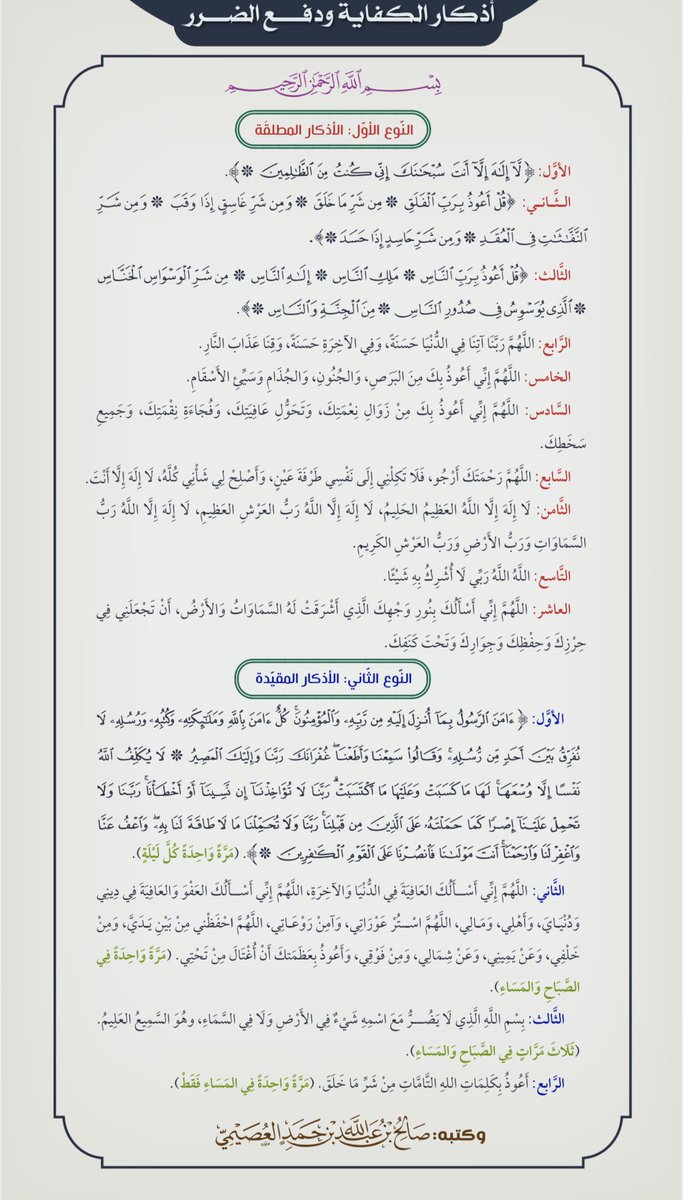 أذكار الكفاية ودفع الضرر
بِسْمِ اللَّهِ الرَّحْمَنِ الرَّحِيمِ
النّوع الأوّل: الأذكار المطلقَة
الأوَّل: ﴿لَّآ إِلَٰهَ إِلَّآ أَنتَ سُبْحَٰنَكَ إِنِّي كُنتُ مِنَ ٱلظَّٰلِمِينَ ❊﴾.
الثَّانـي: ﴿قُلْ أَعُوذُ بِرَبِّ ٱلْفَلَقِ ❊ مِن شَرِّ مَا خَلَقَ ❊ وَمِن شَرِّ غَاسِقٍ إِذَا وَقَبَ ❊ وَمِن شَرِّ
ٱلنَّفَّٰثَٰتِ فِي ٱلْعُقَدِ ❊ وَمِن شَرِّ حَاسِدٍ إِذَا حَسَدَ ❊﴾.
الثَّالث: ﴿قُلْ أَعُوذُ بِرَبِّ ٱلنَّاسِ ❊ مَلِكِ ٱلنَّاسِ ❊ إِلَٰهِ ٱلنَّاسِ ❊ مِن شَرِّ ٱلْوَسْوَاسِ ٱلْخَنَّاسِ
❊ ٱلَّذِي يُوَسْوِسُ فِي صُدُورِ ٱلنَّاسِ ❊ مِنَ ٱلْجِنَّةِ وَٱلنَّاسِ ❊﴾.
الرَّابع: اللَّهُمَّ رَبَّنَا آتِنَا فِي الدُّنْيَا حَسَنَةً، وَفِي الآخِرَةِ حَسَنَةً، وَقِنَا عَذَابَ النَّارِ.
الخامس: اللَّهُمَّ إِنِّي أَعُوذُ بِكَ مِنَ البَرَصِ، وَالجُنُونِ، وَالجُذَامِ وَسَيِّئِ الأَسْقَامِ.
السَّادس: اللَّهُمَّ إِنِّي أَعُوذُ بِكَ مِنْ زَوَالِ نِعْمَتِكَ، وَتَحَوُّلِ عَافِيَتِكَ، وَفُجَاءَةِ نِقْمَتِكَ، وَجَمِيعِ
سَخَطِكَ.
السَّابع: اللَّهُمَّ رَحْمَتَكَ أَرْجُو، فَلَا تَكِلْنِي إِلَى نَفْسِي طَرْفَةَ عَيْنٍ، وَأَصْلِحْ لِي شَأْنِي كُلَّهُ، لَا إِلَهَ إِلَّا أَنْتَ.
الثَّامن: لَا إِلَهَ إِلَّا اللَّهُ العَظِيمُ الحَلِيمُ، لَا إِلَهَ إِلَّا اللَّهُ رَبُّ العَرْشِ العَظِيمِ، لَا إِلَهَ إِلَّا اللَّهُ رَبُّ
السَّمَاوَاتِ وَرَبُّ الأَرْضِ وَرَبُّ العَرْشِ الكَرِيمِ.
التَّاسع: اللَّهُ اللَّهُ رَبِّي لَا أُشْرِكُ بِهِ شَيْئًا.
العاشر: اللَّهُمَّ إِنِّي أَسْأَلُكَ بِنُورِ وَجْهِكَ الَّذِي أَشْرَقَتْ لَهُ السَّمَاوَاتُ وَالأَرْضُ، أَنْ تَجْعَلَنِي فِي
حِرْزِكَ وَحِفْظِكَ وَجِوَارِكَ وَتَحْتَ كَنَفِكَ.
النّوع الثّاني: الأذكار المقيّدة
الأوّل: ﴿ءَامَنَ ٱلرَّسُولُ بِمَآ أُنزِلَ إِلَيْهِ مِن رَّبِّهِۦ وَٱلْمُؤْمِنُونَۚ كُلٌّ ءَامَنَ بِٱللَّهِ وَمَلَٰٓئِكَتِهِۦ وَكُتُبِهِۦ وَرُسُلِهِۦ لَا
نُفَرِّقُ بَيْنَ أَحَدٍ مِّن رُّسُلِهِۦۚ وَقَالُوا۟ سَمِعْنَا وَأَطَعْنَاۖ غُفْرَانَكَ رَبَّنَا وَإِلَيْكَ ٱلْمَصِيرُ ❊ لَا يُكَلِّفُ ٱللَّهُ
نَفْسًا إِلَّا وُسْعَهَاۚ لَهَا مَا كَسَبَتْ وَعَلَيْهَا مَا ٱكْتَسَبَتْۗ رَبَّنَا لَا تُؤَاخِذْنَآ إِن نَّسِينَآ أَوْ أَخْطَأْنَاۚ رَبَّنَا وَلَا
تَحْمِلْ عَلَيْنَآ إِصْرًا كَمَا حَمَلْتَهُۥ عَلَى ٱلَّذِينَ مِن قَبْلِنَاۚ رَبَّنَا وَلَا تُحَمِّلْنَا مَا لَا طَاقَةَ لَنَا بِهِۦۖ وَٱعْفُ عَنَّا
وَٱغْفِرْ لَنَا وَٱرْحَمْنَآۚ أَنتَ مَوْلَىٰنَا فَٱنصُرْنَا عَلَى ٱلْقَوْمِ ٱلْكَٰفِرِينَ ❊﴾. (مَرَّةً وَاحِدَةً كُلَّ لَيْلَةٍ).
الثَّاني: اللَّهُمَّ إِنِّي أَسْأَلُكَ العَافِيَةَ فِي الدُّنْيَا وَالآخِرَةِ، اللَّهُمَّ إِنِّي أَسْأَلُكَ العَفْوَ وَالعَافِيَةَ فِي دِينِي
وَدُنْيَايَ، وَأَهْلِي، وَمَالِي، اللَّهُمَّ اسْتُرْ عَوْرَاتِي، وَآمِنْ رَوْعَاتِي، اللَّهُمَّ احْفَظْنِي مِنْ بَيْنِ يَدَيَّ، وَمِنْ
خَلْفِي، وَعَنْ يَمِينِي، وَعَنْ شِمَالِي، وَمِنْ فَوْقِي، وَأَعُوذُ بِعَظَمَتِكَ أَنْ أُغْتَالَ مِنْ تَحْتِي. (مَرَّةً وَاحِدَةً فِي
الصَّبَاحِ وَالمَسَاءِ).
الثَّالث: بِسْمِ اللَّهِ الَّذِي لَا يَضُرُّ مَعَ اسْمِهِ شَيْءٌ فِي الأَرْضِ وَلَا فِي السَّمَاءِ، وَهُوَ السَّمِيعُ العَلِيمُ.
(ثَلَاثَ مَرَّاتٍ فِي الصَّبَاحِ وَالمَسَاءِ).
الرَّابع: أَعُوذُ بِكَلِمَاتِ اللهِ التَّامَّاتِ مِنْ شَرِّ مَا خَلَقَ. (مَرَّةً وَاحِدَةً فِي المَسَاءِ فَقَطْ).
وكتبه: صَالِحُ بْنُ عَبْدِ اللَّهِ بْنِ حَمَدٍ العُصَيْمِيُّ